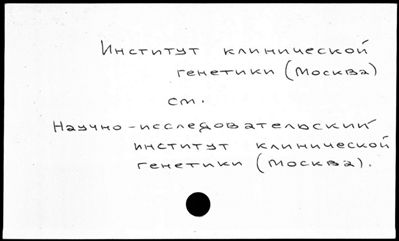 Институт клинической
генетики (Москва)
см.
Научно-исследовательский
институт клинической
генетики (Москва).